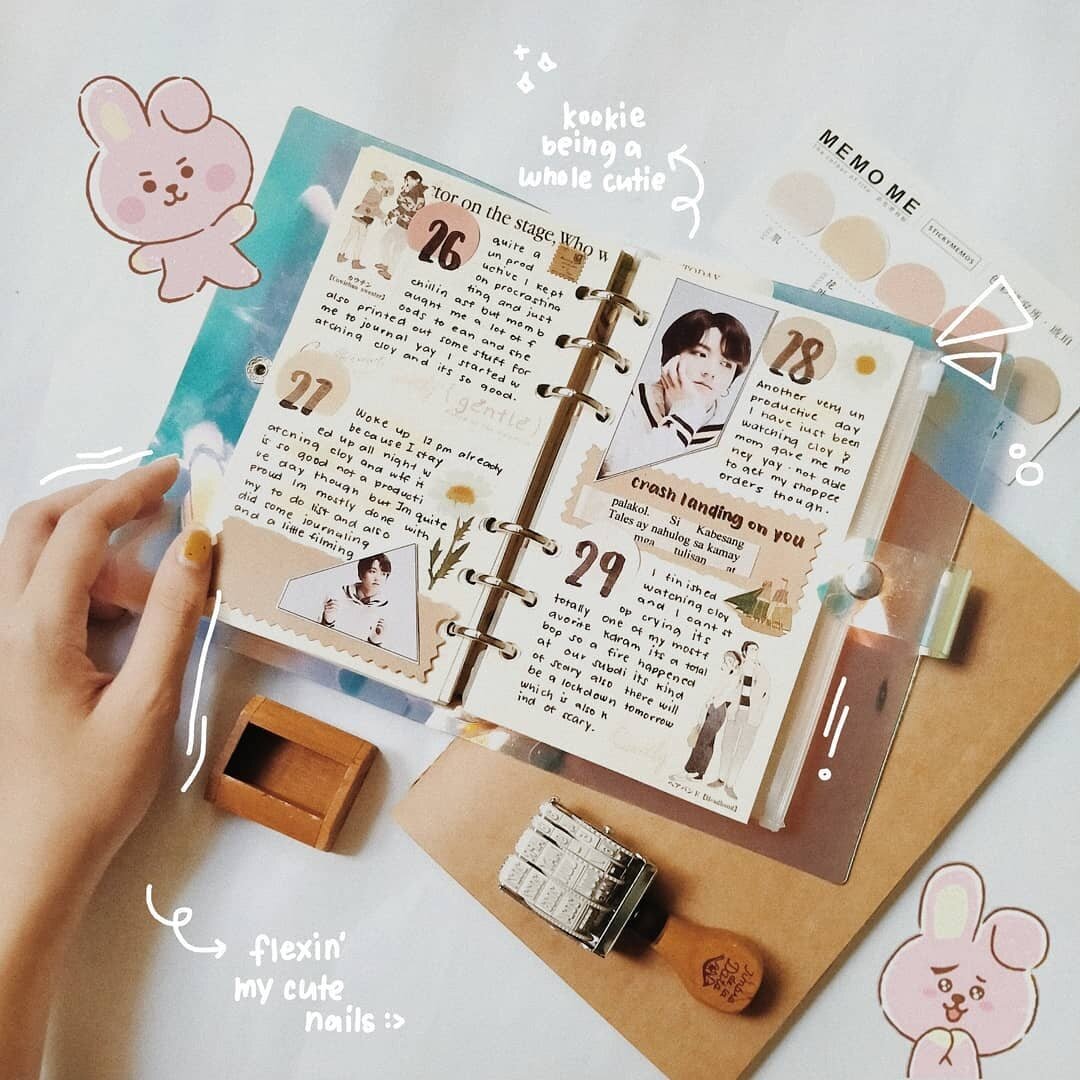 kookie
being a
whole cutie
MEMO ME
STICKYMEMOS
tor on the stage, Who w
26
quite a
un prod
uctive I kept
on procrastina
ting and just
chillin asf but momb
aught me a lot of f
oods to ean and she
also printed out some stuff for
me to journal yay I started w
atching cloy and its so good.
カウチン
【Cowichan sweater】
(gentle)
27
Woke up 12 pm already
because I stay
ed up all night w
atching cloy and wtf it
is so good not a producti
ve day though but Im quite
proud Im mostly done with
my to do list and also
did some journaling
and a little filming
TODAY
28
Another very un
productive day
I have just been
watching cloy &
mom gave me mo
ney yay. not able
to get my shopee
orders though.
crash landing on you
palakol. Si Kabesang
Tales ay nahulog sa kamay
mga tulisan at
29
I finished
watching cloy
and I cant st
op crying its
totally one of my most f
avorite kdram its a total
bop so a fire happened
at our subdi its kind
of scary also there will
be a lockdown tomorrow
which is also k
ind of scary.
ヘアバンド【Headband】
flexin'
my cute
nails :>